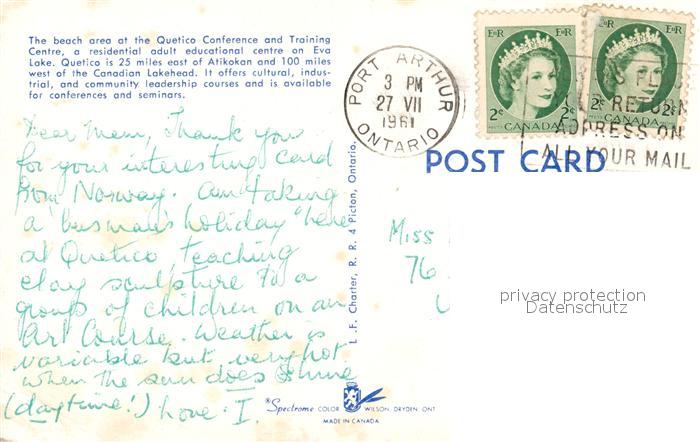 The beach area at the Quetico Conference and Training
Centre, a residential adult educational centre on Eva
Lake. Quetico is 25 miles east of Atikokan and 100 miles
west of the Canadian Lakehead. It offers cultural, indus-
trial, and community leadership courses and is available
for conferences and seminars.
Dear Mem, Thank you
for your interesting card
from Norway. Am taking
a "busman's holiday" here
at Quetico teaching
clay sculpture to a
group of children on an
Art Course. Weather is
variable but very hot
when the sun does shine
(daytime!) Love: I.
L .F. Charter, R. R. 4 Picton, Ontario.
PORT ARTHUR
3 PM
27 VII
1961
ONTARIO
EIIR EIIR
2c 2c
CANADA
EIIR EIIR
2c 2c
CANADA
RETURN
ADDRESS ON
ALL YOUR MAIL
POST CARD
Miss
76
privacy protection
Datenschutz
®Spectrome COLOR WILSON, DRYDEN ONT
MADE IN CANADA